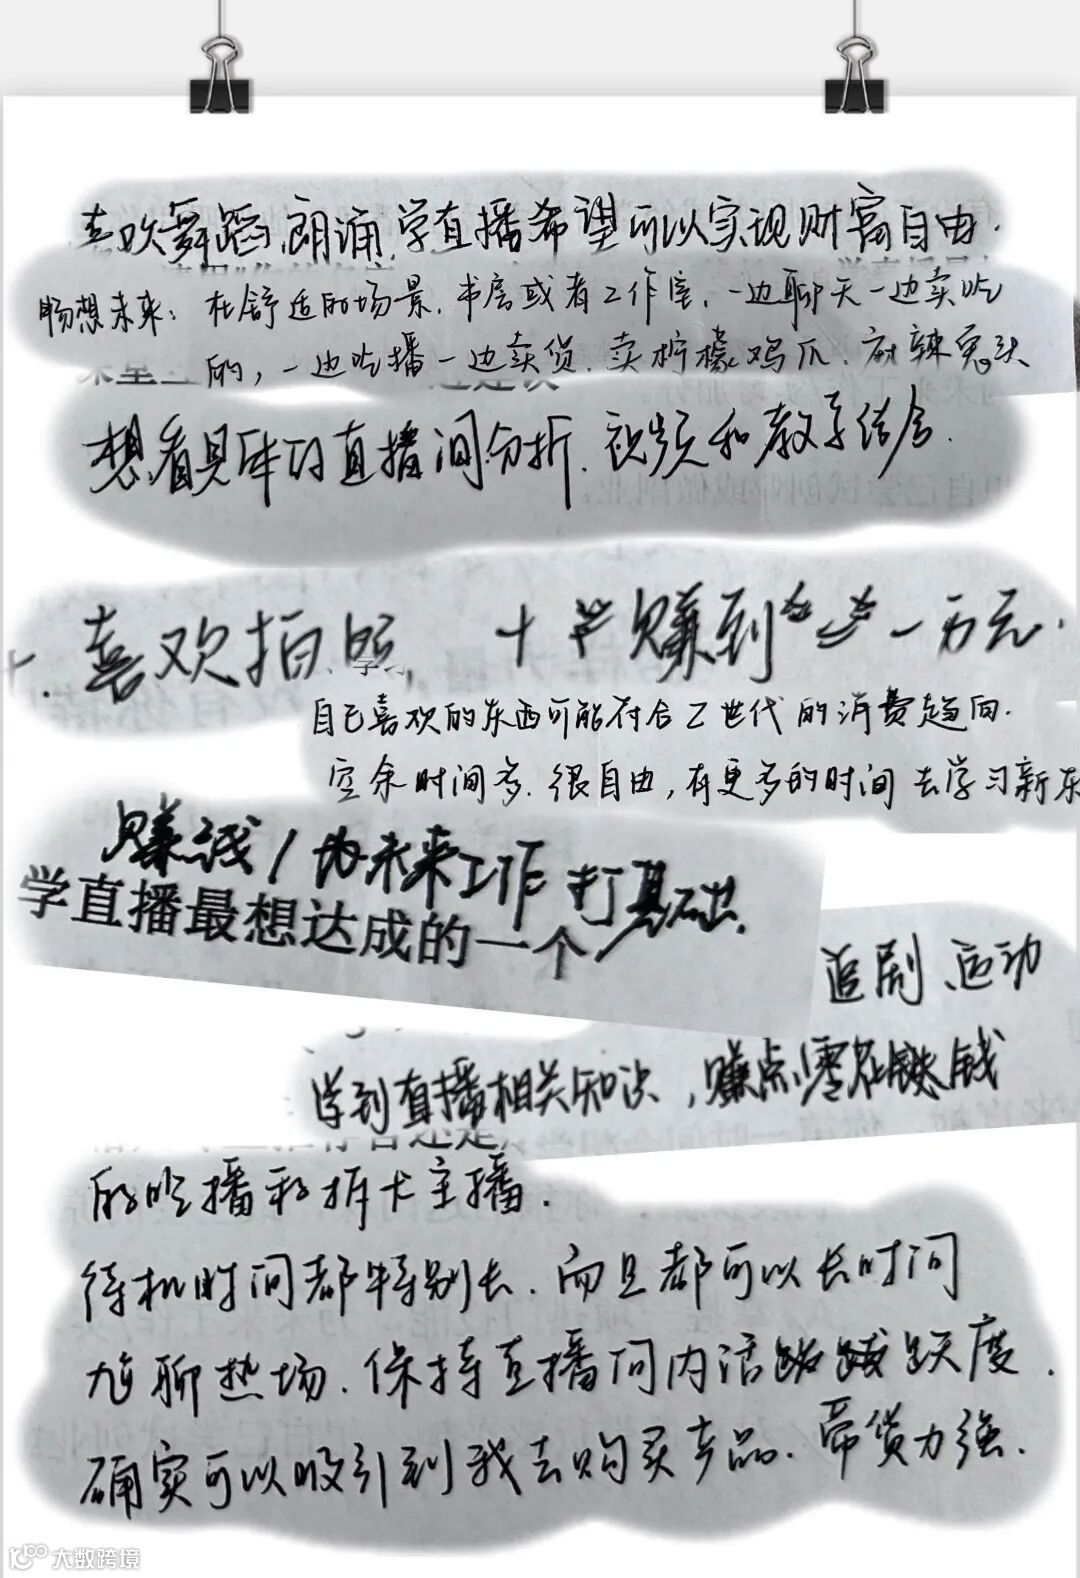 喜欢舞蹈,朗诵,学直播希望可以实现财富自由.
畅想未来：在舒适的场景.书房或者工作室,一边聊天一边卖吃
的,一边吃播一边卖货.卖柠檬鸡爪.麻辣兔头
想看具体的直播间分析.视频和教学结合.
喜欢拍照,
赚到一万元.
自己喜欢的东西可能符合Z世代的消费趋向.
空余时间多.很自由,有更多的时间去学习新东
赚钱/为未来工作打基础.
学直播最想达成的一个
追剧、运动
学到直播相关知识,赚点零花钱
的吃播和拆卡主播.
待机时间都特别长.而且都可以长时间
尬聊热场.保持直播间内活跃度.
确实可以吸引到我去购买产品.带货力强.
大数跨境